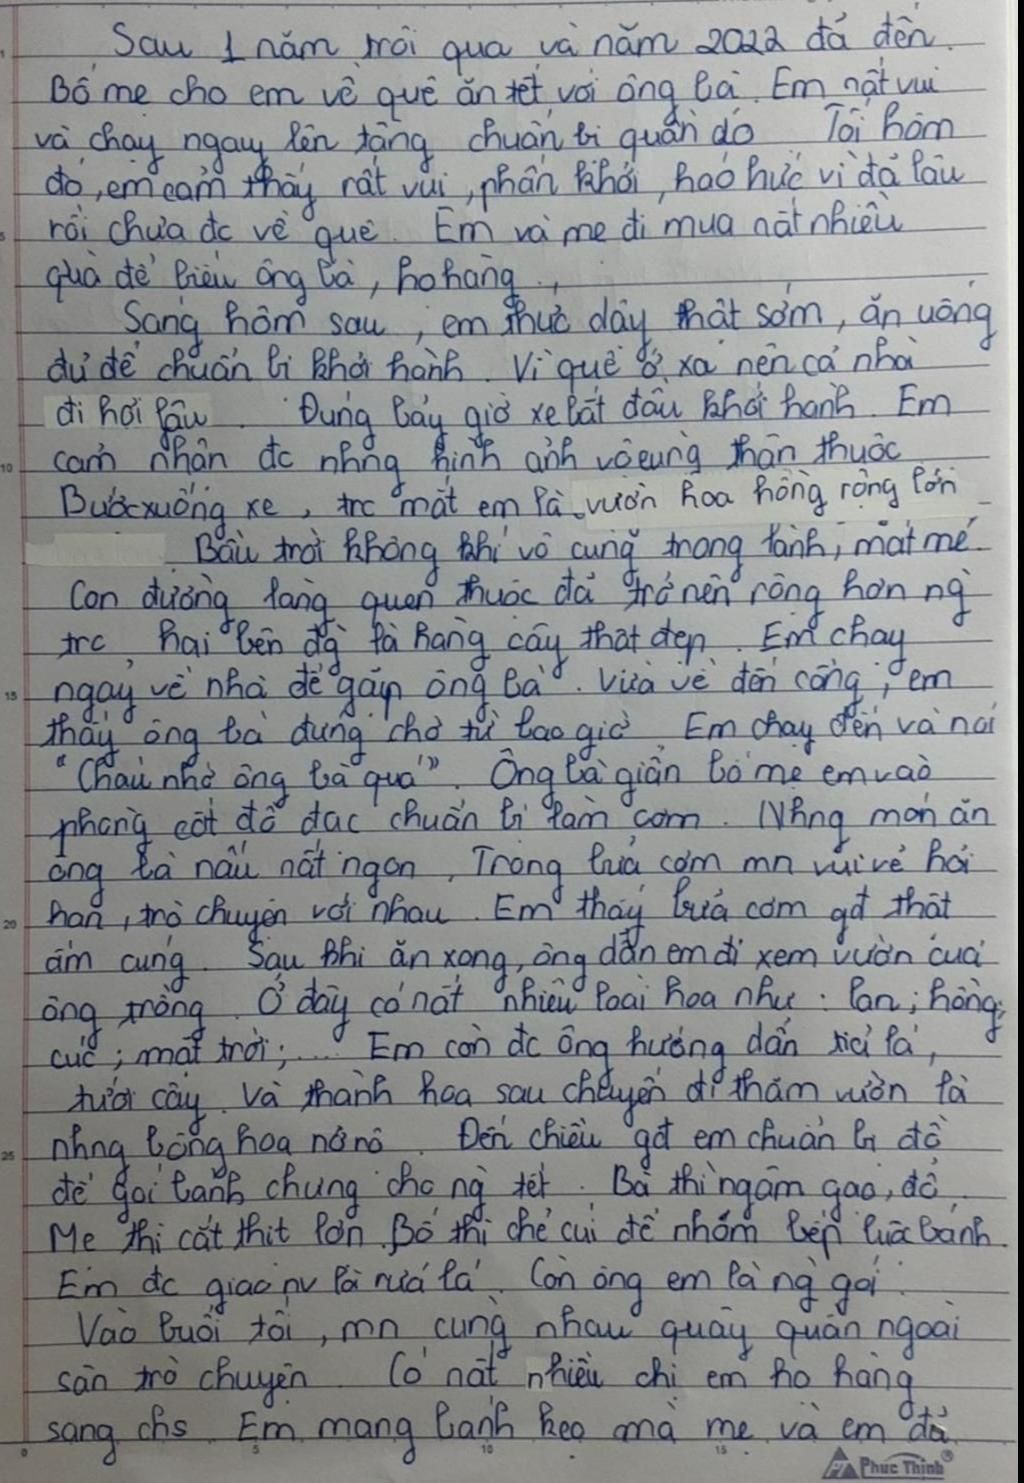 Sau 1 năm trôi qua và năm 2022 đã đến.
Bố mẹ cho em về quê ăn tết với ông bà. Em rất vui
và chạy ngay lên tầng chuẩn bị quần đồ Tối hôm
đó, em cảm thấy rất vui, phấn khởi, háo hức vì đã lâu
rồi chưa đc về quê. Em và mẹ đi mua rất nhiều
quà để biếu ông bà, họ hàng.
Sáng hôm sau, em thức dậy thật sớm, ăn uống
đủ để chuẩn bị khởi hành. Vì quê ở xa nên cả nhà
đi hơi lâu. Đúng bảy giờ xe bắt đầu khởi hành. Em
cảm nhận đc nhng hình ảnh vô cùng thân thuộc
Bước xuống xe, trc mắt em là vườn hoa hồng rộng lớn
Bầu trời không khí vô cùng trong lành, mát mẻ.
Con đường làng quen thuộc đã trở nên rộng hơn ng`
trc hai bên đg` là hàng cây thật đẹp. Em chạy
ngay về nhà để gặp ông bà. Vừa về đến cổng, em
thấy ông bà đứng chờ từ bao giờ Em chạy đến và nói
"Cháu nhớ ông bà quá". Ông bà giản bố mẹ em vào
phòng cất đồ đạc chuẩn bị làm cơm. Nhng món ăn
ông bà nấu rất ngon. Trong bữa cơm mn vui vẻ hỏi
han, trò chuyện với nhau. Em thấy bữa cơm gđ thật
ấm cúng. Sau khi ăn xong, ông dẫn em đi xem vườn của
ông trồng. Ở đây có rất nhiều loài hoa như: lan; hồng;
cúc; mặt trời;.... Em còn đc ông hướng dẫn tỉa lá,
tưới cây. Và thành hoa sau chuyến đi thăm vườn là
nhng bông hoa nở rộ. Đến chiều gđ em chuẩn bị đồ
để gói bánh chưng cho ng` tết. Bà thì ngâm gạo, đỗ
Mẹ thì cắt thịt lợn. Bố thì chẻ củi để nhóm bếp luộc bánh.
Em đc giao nv là rửa lá. Còn ông em là ng` gói.
Vào buổi tối, mn cùng nhau quây quần ngoài
sân trò chuyện. Có rất nhiều chị em họ hàng
sang chs Em mang bánh kẹo mà mẹ và em đã
Phuc Thinh®